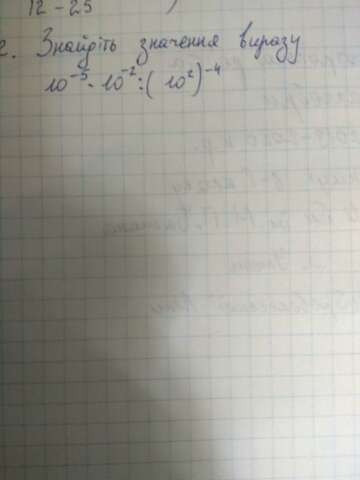 12-25
2. Знайдіть значення виразу
10⁻⁵·10⁻²:(10²)⁻⁴